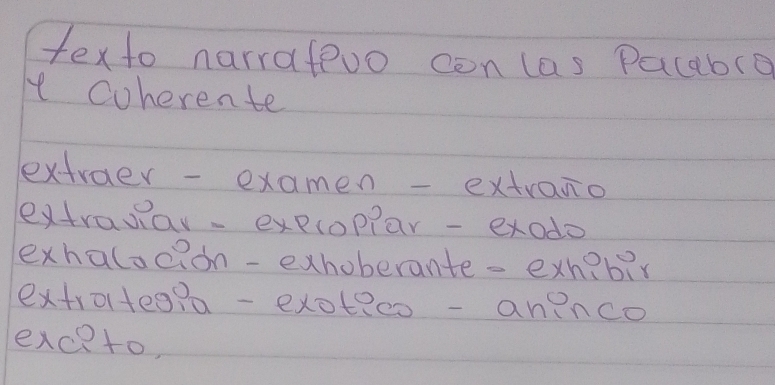 texto narrativo con las Palabra
Y Coherente
extraer - examen - extraño
extraviar - expropiar - exodo
exhalación - exhoberante - exhibir
extrategia - exotico - aninco
excito.